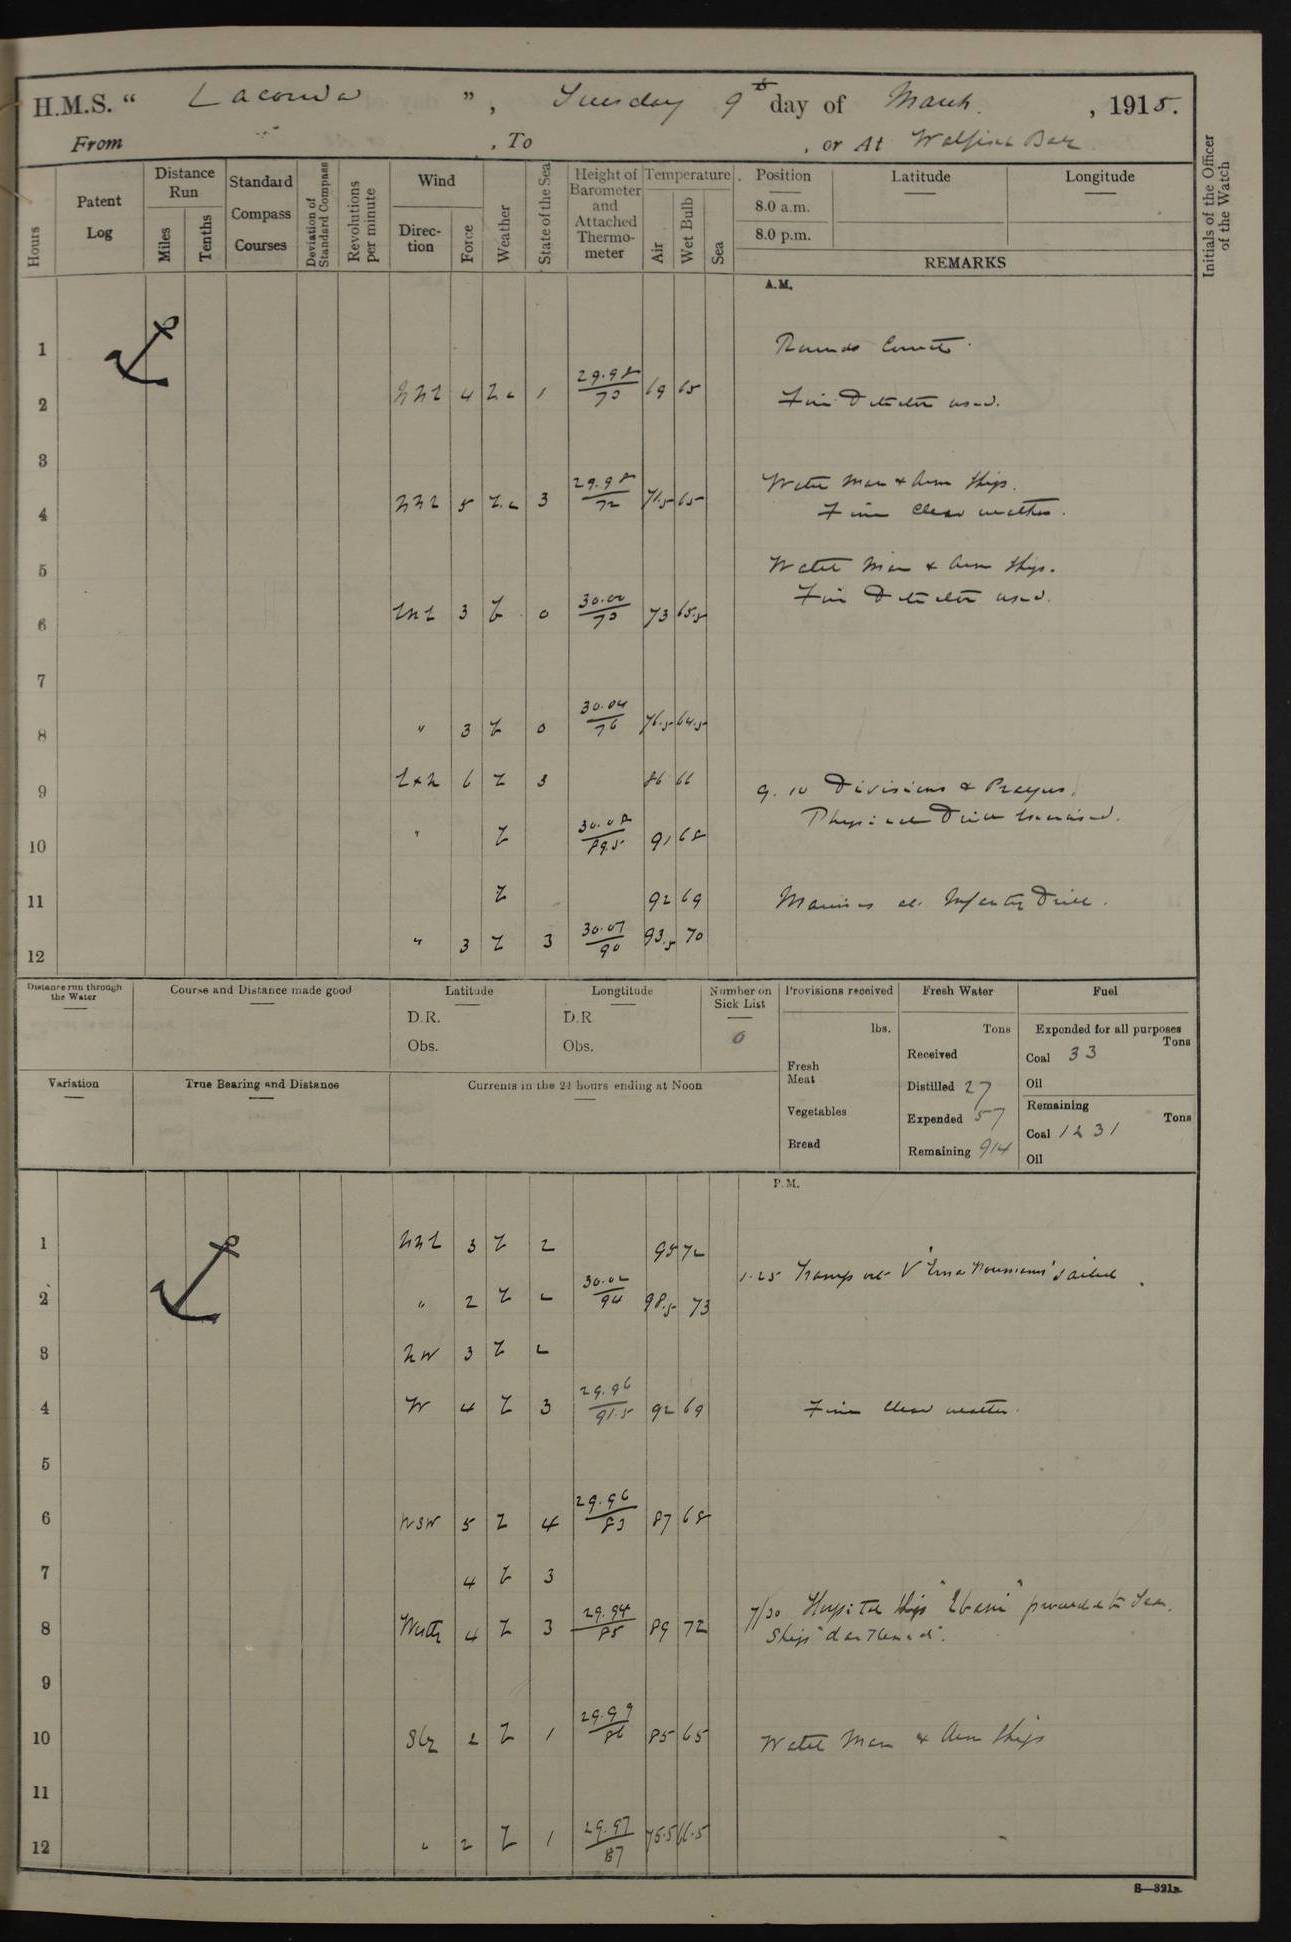 H.M.S. " Laconia ", Tuesday 9th day of March, 1915.
From , To , or At Walfish Bay
Hours
Patent Log
Distance Run
Miles
Tenths
Standard Compass Courses
Deviation of Standard Compass
Revolutions per minute
Wind
Direction
Force
Weather
State of the Sea
Height of Barometer and Attached Thermometer
Temperature
Air
Wet Bulb
Sea
Position
8.0 a.m.
8.0 p.m.
Latitude
Longitude
REMARKS
Initials of the Officer of the Watch
A.M.
1 Rounds Correct.
2 4 1 29.98/70 69 65 Fire Detector used.
3
4 5 3 29.98/72 71.5 65 Watch Man & Arm Ship.
Fine clear weather.
5 Watch Man & Arm Ship.
Fire Detector used.
6 3 0 30.00/70 73 65.5
7
8 " 3 0 30.04/76 76.5 64.5
9 6 3 86 66 9.10 Divisions & Prayers.
Physical Drill Exercised.
10 " 30.08/89.5 91 68
11 92 69 Marines at Infantry Drill.
12 " 3 3 30.07/90 93.5 70
Distance run through the Water
Course and Distance made good
Latitude
D.R.
Obs.
Longtitude
D.R
Obs.
Number on Sick List
0
Provisions received
lbs.
Fresh Meat
Vegetables
Bread
Fresh Water
Tons
Received
Distilled 27
Expended 57
Remaining 914
Fuel
Expended for all purposes
Tons
Coal 33
Oil
Remaining
Tons
Coal 1231
Oil
Variation
True Bearing and Distance
Currents in the 24 hours ending at Noon
P.M.
1 3 2 95 72
1.25 Transport sailed.
2 " 2 2 30.02/94 98.5 73
3 NW 3 2
4 W 4 3 29.96/91.5 92 69 Fine clear weather.
5
6 WSW 5 4 29.96/83 87 68
7 4 3
8 4 3 29.94/85 89 72 7/30 Hospital Ship "Ebani" proceeded to Sea.
Ships darkened.
9
10 2 1 29.99/86 85 65 Watch Man & Arm Ship
11
12 " 2 1 29.97/87 75.5 66.5
S—321a.